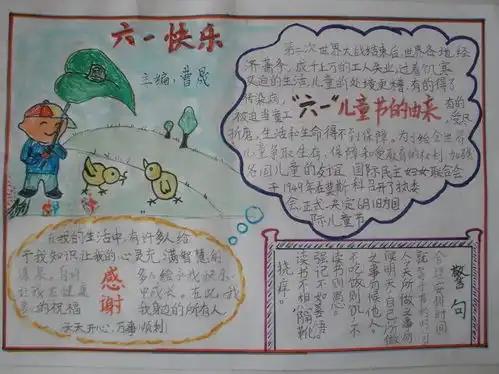 六一快乐
主编,曹晟
第二次世界大战结束后,世界各地,经
济萧条,成千上万的工人失业,过着饥寒
交迫的生活,儿童的处境更糟,有的得了
传染病,
被迫当童工
"六一"儿童节的由来
有的
受尽
折磨,生活和生命得不到保障,为了给全世界
儿童争取生存、保障和受教育的权利,加强
各国儿童的友谊,国际民主妇女联合会
于1949年在莫斯科召开了执委
会正式决定6月1日为国
际儿童节
在我的生活中,有许多人给
予我知识让我的心灵充满智慧的
感谢
多人给予我快乐
让我在健康
中成长。在此,我
的祝福
我身边的所有人
天天开心,万事顺利!
警句
合理安排时间
就等于节约时间
今天所做之事勿
候明天,自己所做
之事勿候他人。
不吃饭则饥,不
读书则愚。
强记不如善悟。
读书不想隔靴
挠痒。